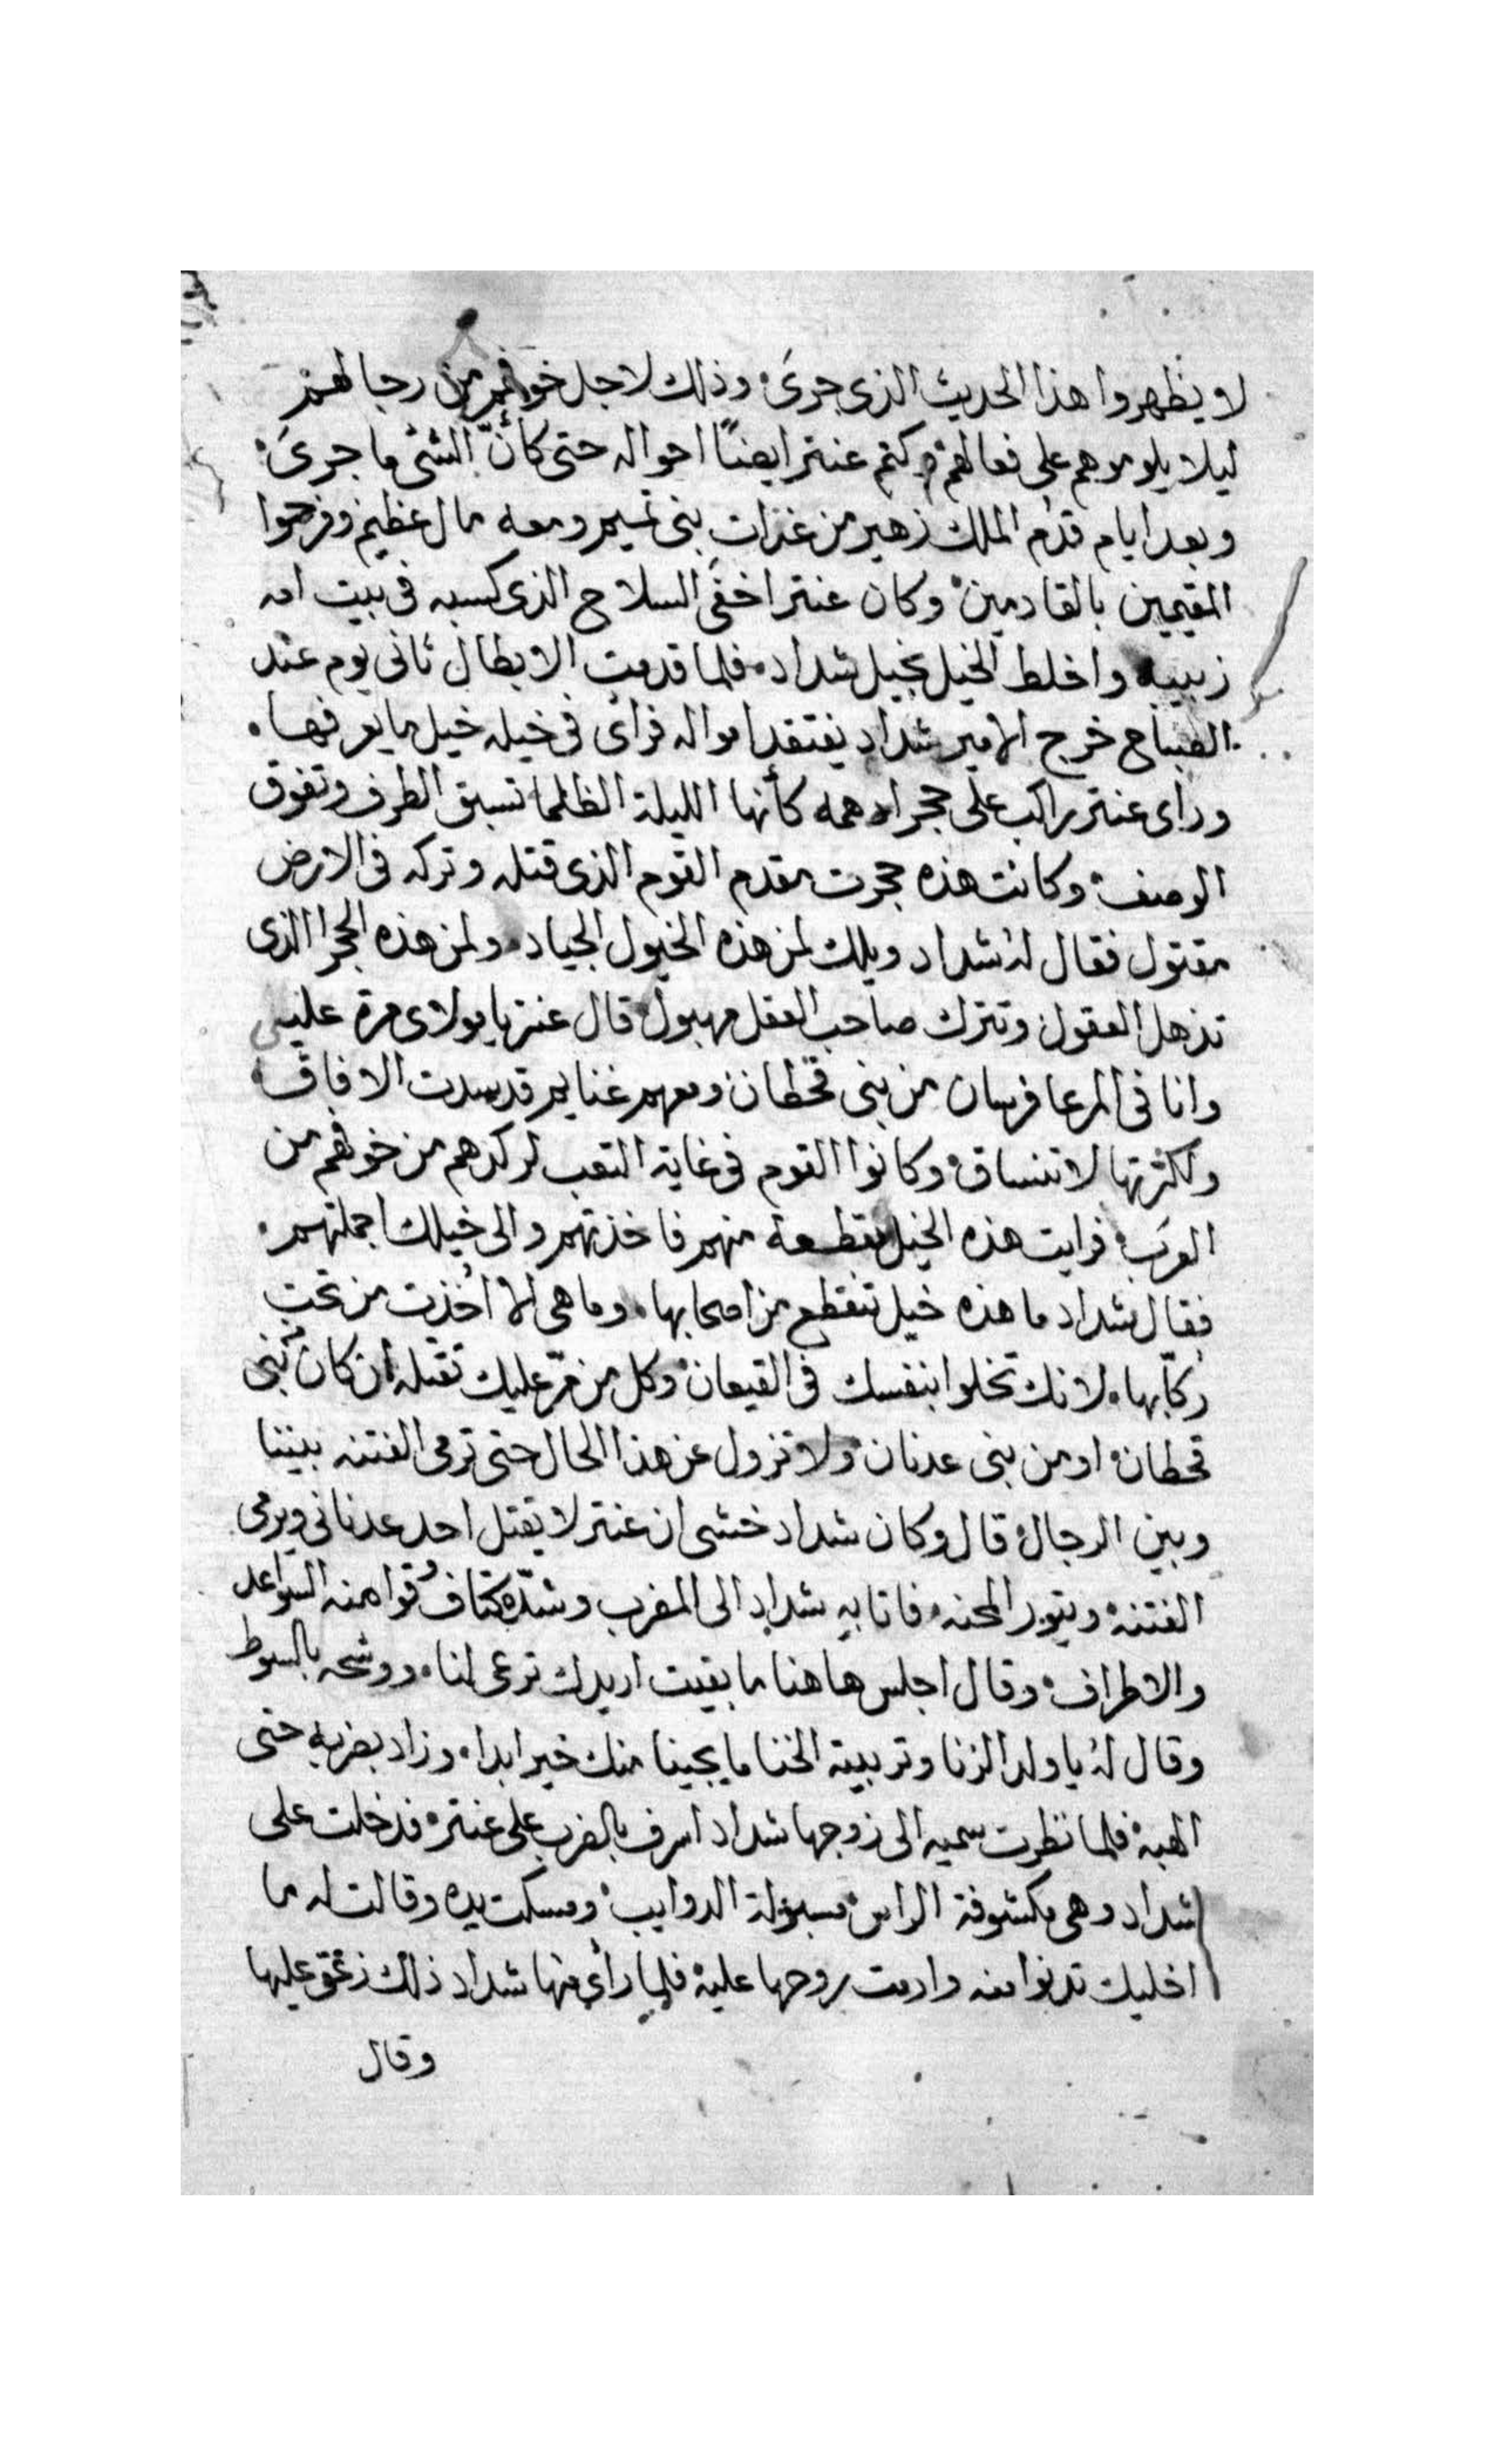 لا يظهروا هذا الحديث الذى جرىَ وذلك لاجل خوفهم من رجالهم
ليلا يلوموهم على فعالهم وكتم عنتر ايضًا احواله حتى كأنّ الشئ ما جرىَ
وبعد ايام قدم الملك زهير من غزات بنى تميم ومعه مال عظيم وفرحوا
المقيمين بالقادمين وكان عنتر اخفى السلاح الذى كسبه فى بيت امه
زبيبه واخلط الخيل بخيل شداد فلما قدمت الابطال ثانى يوم عند
الصباح خرج الامير شداد يفتقد امواله فرائ فى خيله خيل ما يعرفها
وراى عنتر راكب على حجر ادهمه كأنها الليلة الظلما تسبق الطرف وتفوق
الوصف وكانت هذه حجرت مقدم القوم الذى قتله وتركه فى الارض
مقتول فقال لهُ شداد ويلك لمن هذه الخيول الجياد ولمن هذه الحجرا الذى
تذهل العقول وتترك صاحب العقل مهبول قال عنتر يا مولاى مرة عليى
وانا فى المرعا فرسان من بنى قحطان ومعهم غنايم قد سدت الافاق
ولكثرتها لا تنساق وكانوا القوم فى غاية التعب لركدهم من خوفهم من
العرَب فرايت هذه الخيل منقطعة منهم فاخذتهم والى خيلك اجملتهم
فقال شداد ما هذه خيل تنقطع من اصحابها وما هى الا اُخذت من تحت
ركّابها لانك تخلوا بنفسك فى القيعان وكل من مرّ عليك تقتله ان كان بنى
قحطان او من بنى عدنان ولا تزول عن هذا الحال حتى ترمى الفتنه بيننا
وبين الرجال قال وكان شداد خشى ان عنتر لا يقتل احد عدنانى ويرمى
الفتنة ويتور المحنه فاتا به شداد الى المضرب وشدّه كتاف وقوا منه السواعد
والاطراف وقال اجلس هاهنا ما بقيت اريدك ترعى لنا ووشحه بالسوط
وقال لهُ يا ولد الزنا وتربية الخنا ما يجينا منك خير ابدا وزاد بضربه حتى
الهبه فلما نظرت سميه الى زوجها شداد اسرف بالضرب على عنتر فدخلت على
شداد وهى مكشوفة الراس مسبولة الدوايب ومسكت يده وقالت له ما
اخليك تدنوا منه وارمت بروحها عليه فلما رأى منها شداد ذلك زعق عليها
وقال